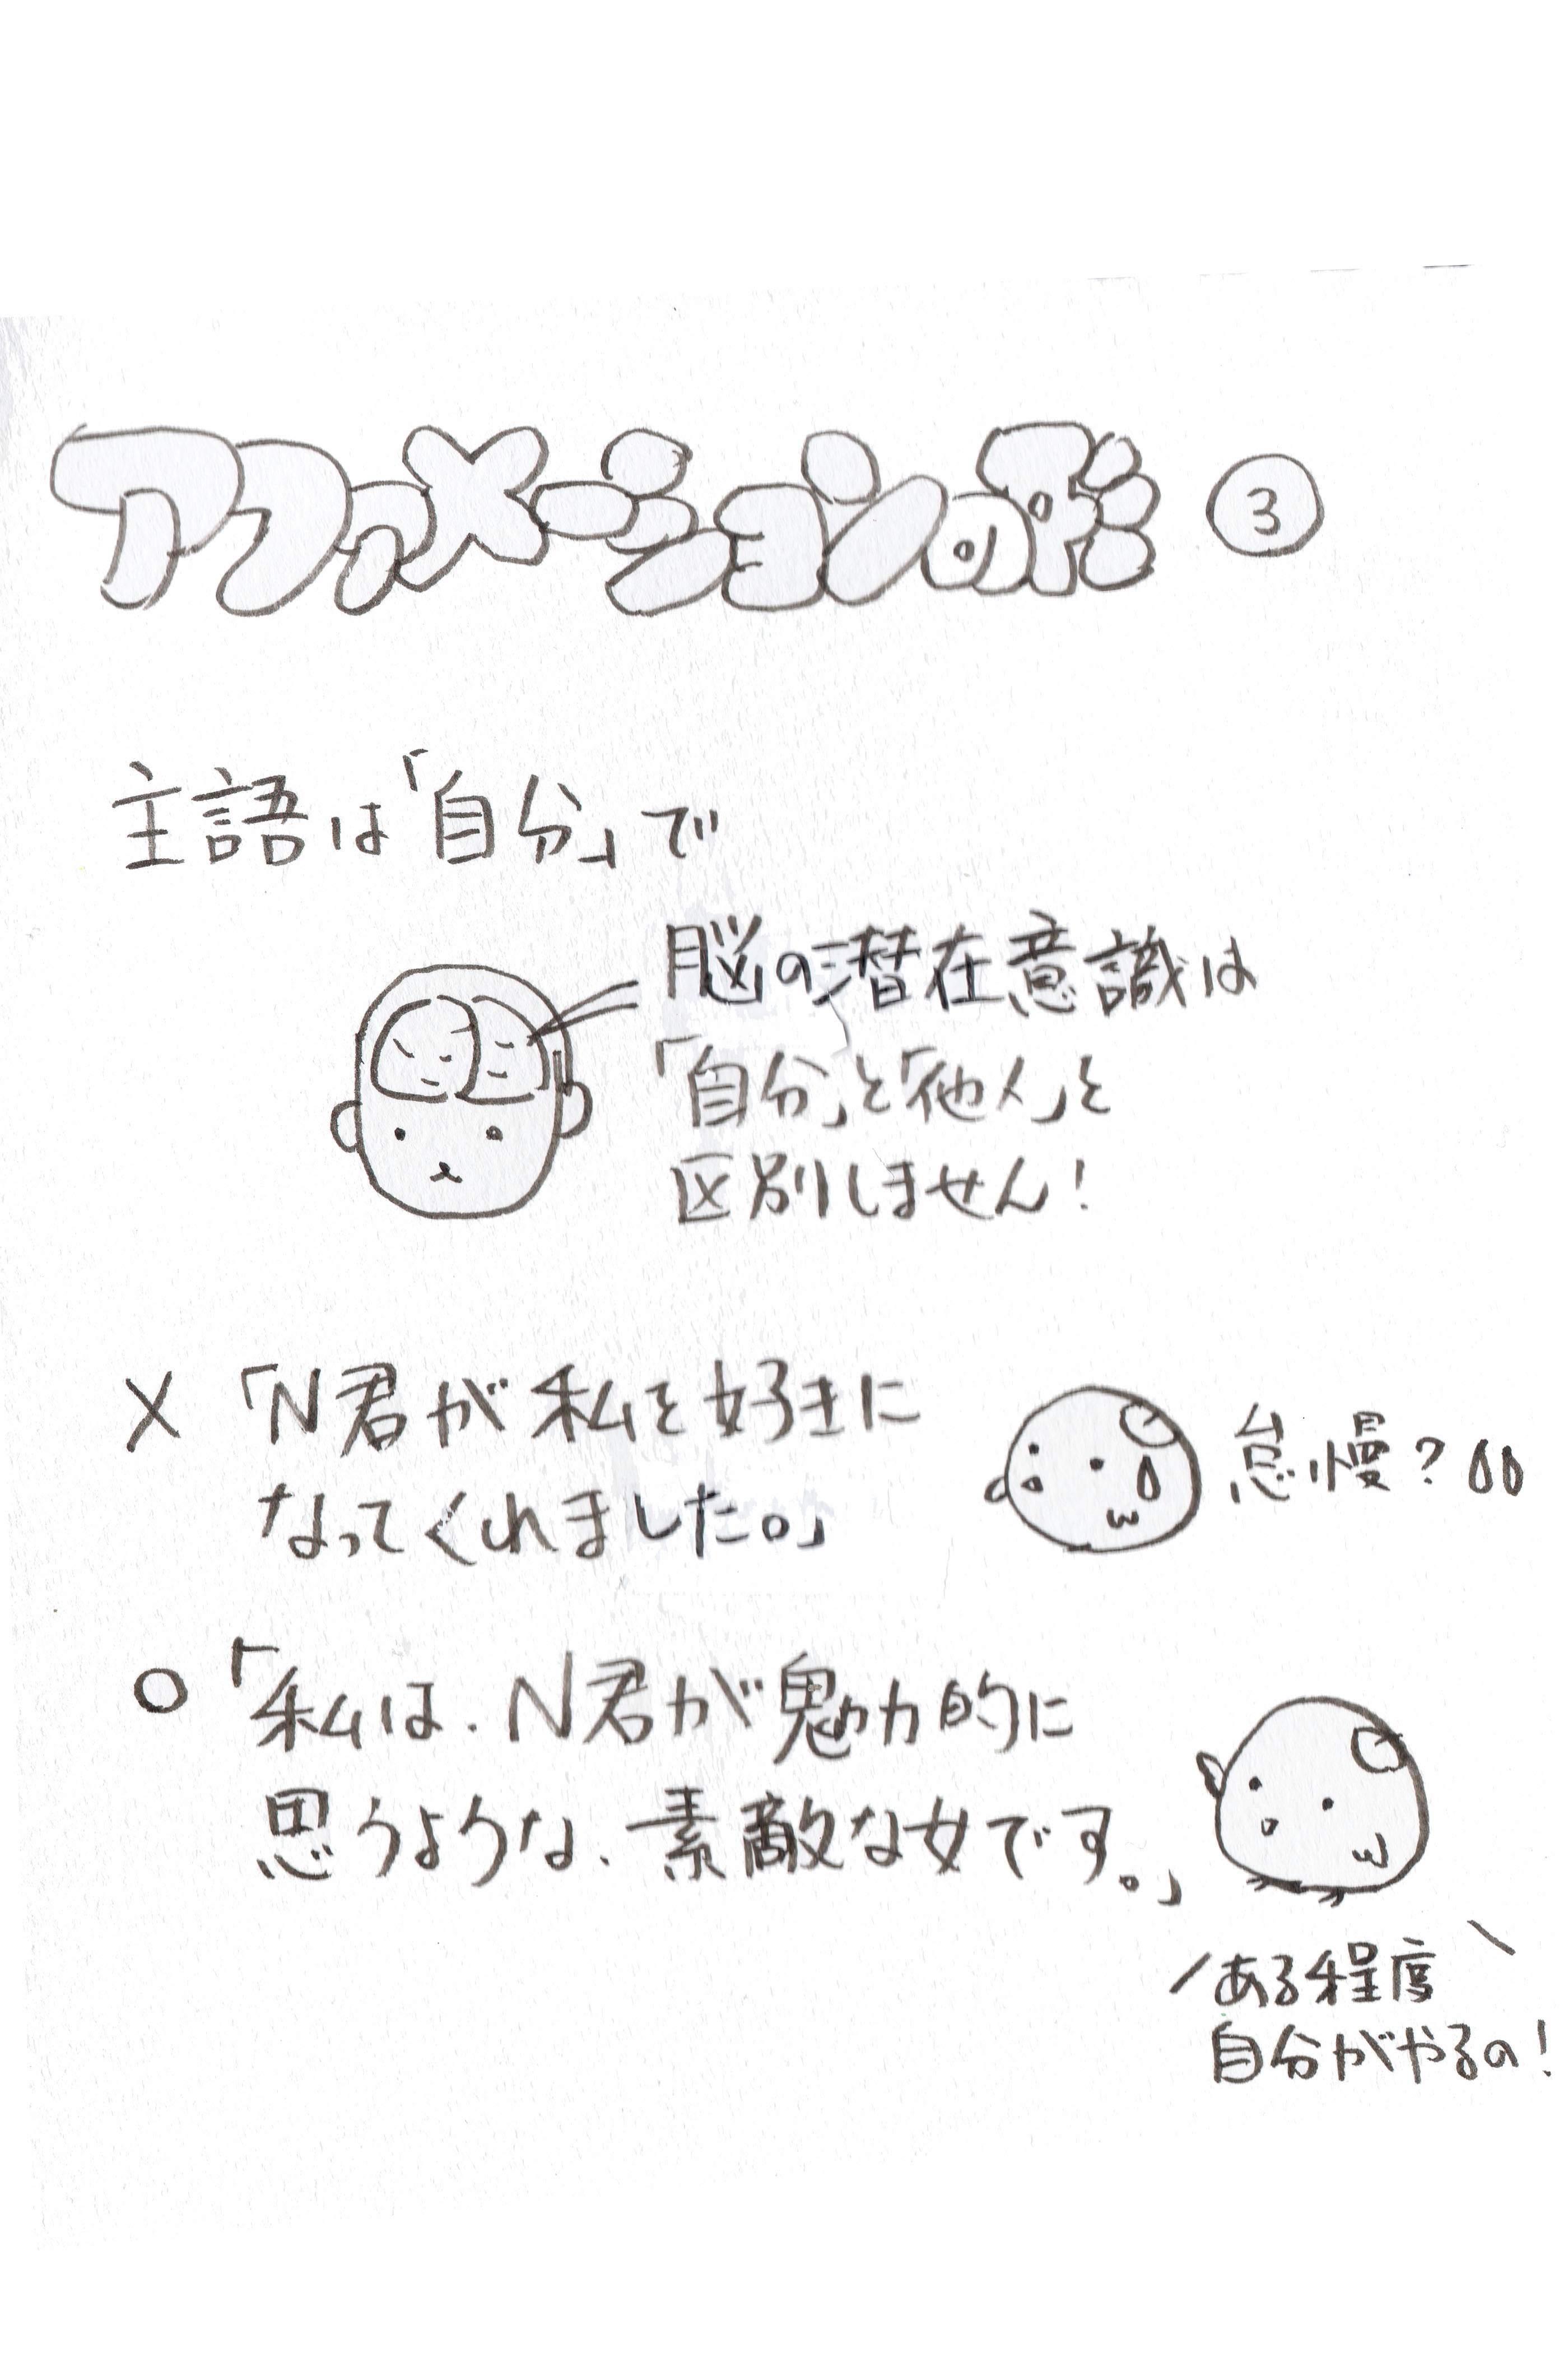 アファメーションの形 ③
主語は「自分」で
脳の潜在意識は
「自分」と「他人」を
区別しません!
× 「N君が私を好きに
なってくれました。」
怠慢?
○ 「私は、N君が魅力的に
思うような、素敵な女です。」
ある程度
自分がやるの!